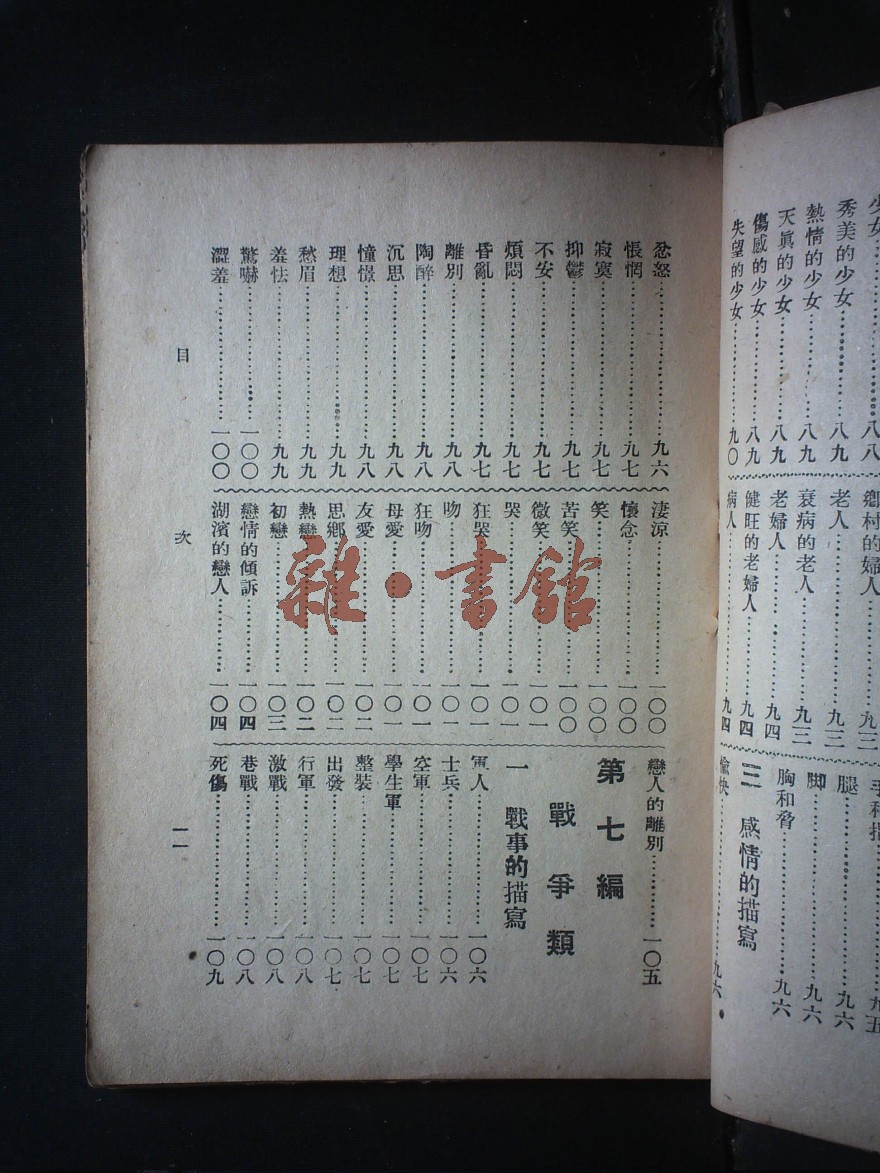 少女……八八
秀美的少女……八九
熱情的少女……八九
天眞的少女……八九
傷感的少女……八九
失望的少女……九〇
鄉村的婦人……九三
老人……九三
衰病的老人……九三
老婦人……九四
健旺的老婦人……九四
病人……九四
手和指……九五
腿……九六
脚……九六
胸和脅……九六
三 感情的描寫
愉快……九六
忿怒……九六
悵惘……九七
寂寞……九七
抑鬱……九七
不安……九七
煩悶……九七
昏亂……九七
離別……九八
陶醉……九八
沉思……九八
憧憬……九八
理想……九九
愁眉……九九
羞怯……九九
驚嚇……一〇〇
澀羞……一〇〇
淒涼……一〇〇
懷念……一〇〇
笑……一〇〇
苦笑……一〇〇
微笑……一〇一
哭……一〇一
狂哭……一〇一
吻……一〇一
狂吻……一〇一
母愛……一〇一
友愛……一〇二
思鄉……一〇二
熱戀……一〇二
初戀……一〇三
戀情的傾訴……一〇四
湖濱的戀人……一〇四
戀人的離別……一〇五
第七編
戰爭類
一 戰事的描寫
軍人……一〇六
士兵……一〇六
空軍……一〇七
學生軍……一〇七
整裝……一〇七
出發……一〇七
行軍……一〇八
激戰……一〇八
巷戰……一〇八
死傷……一〇九
目次
一一
雜·書館